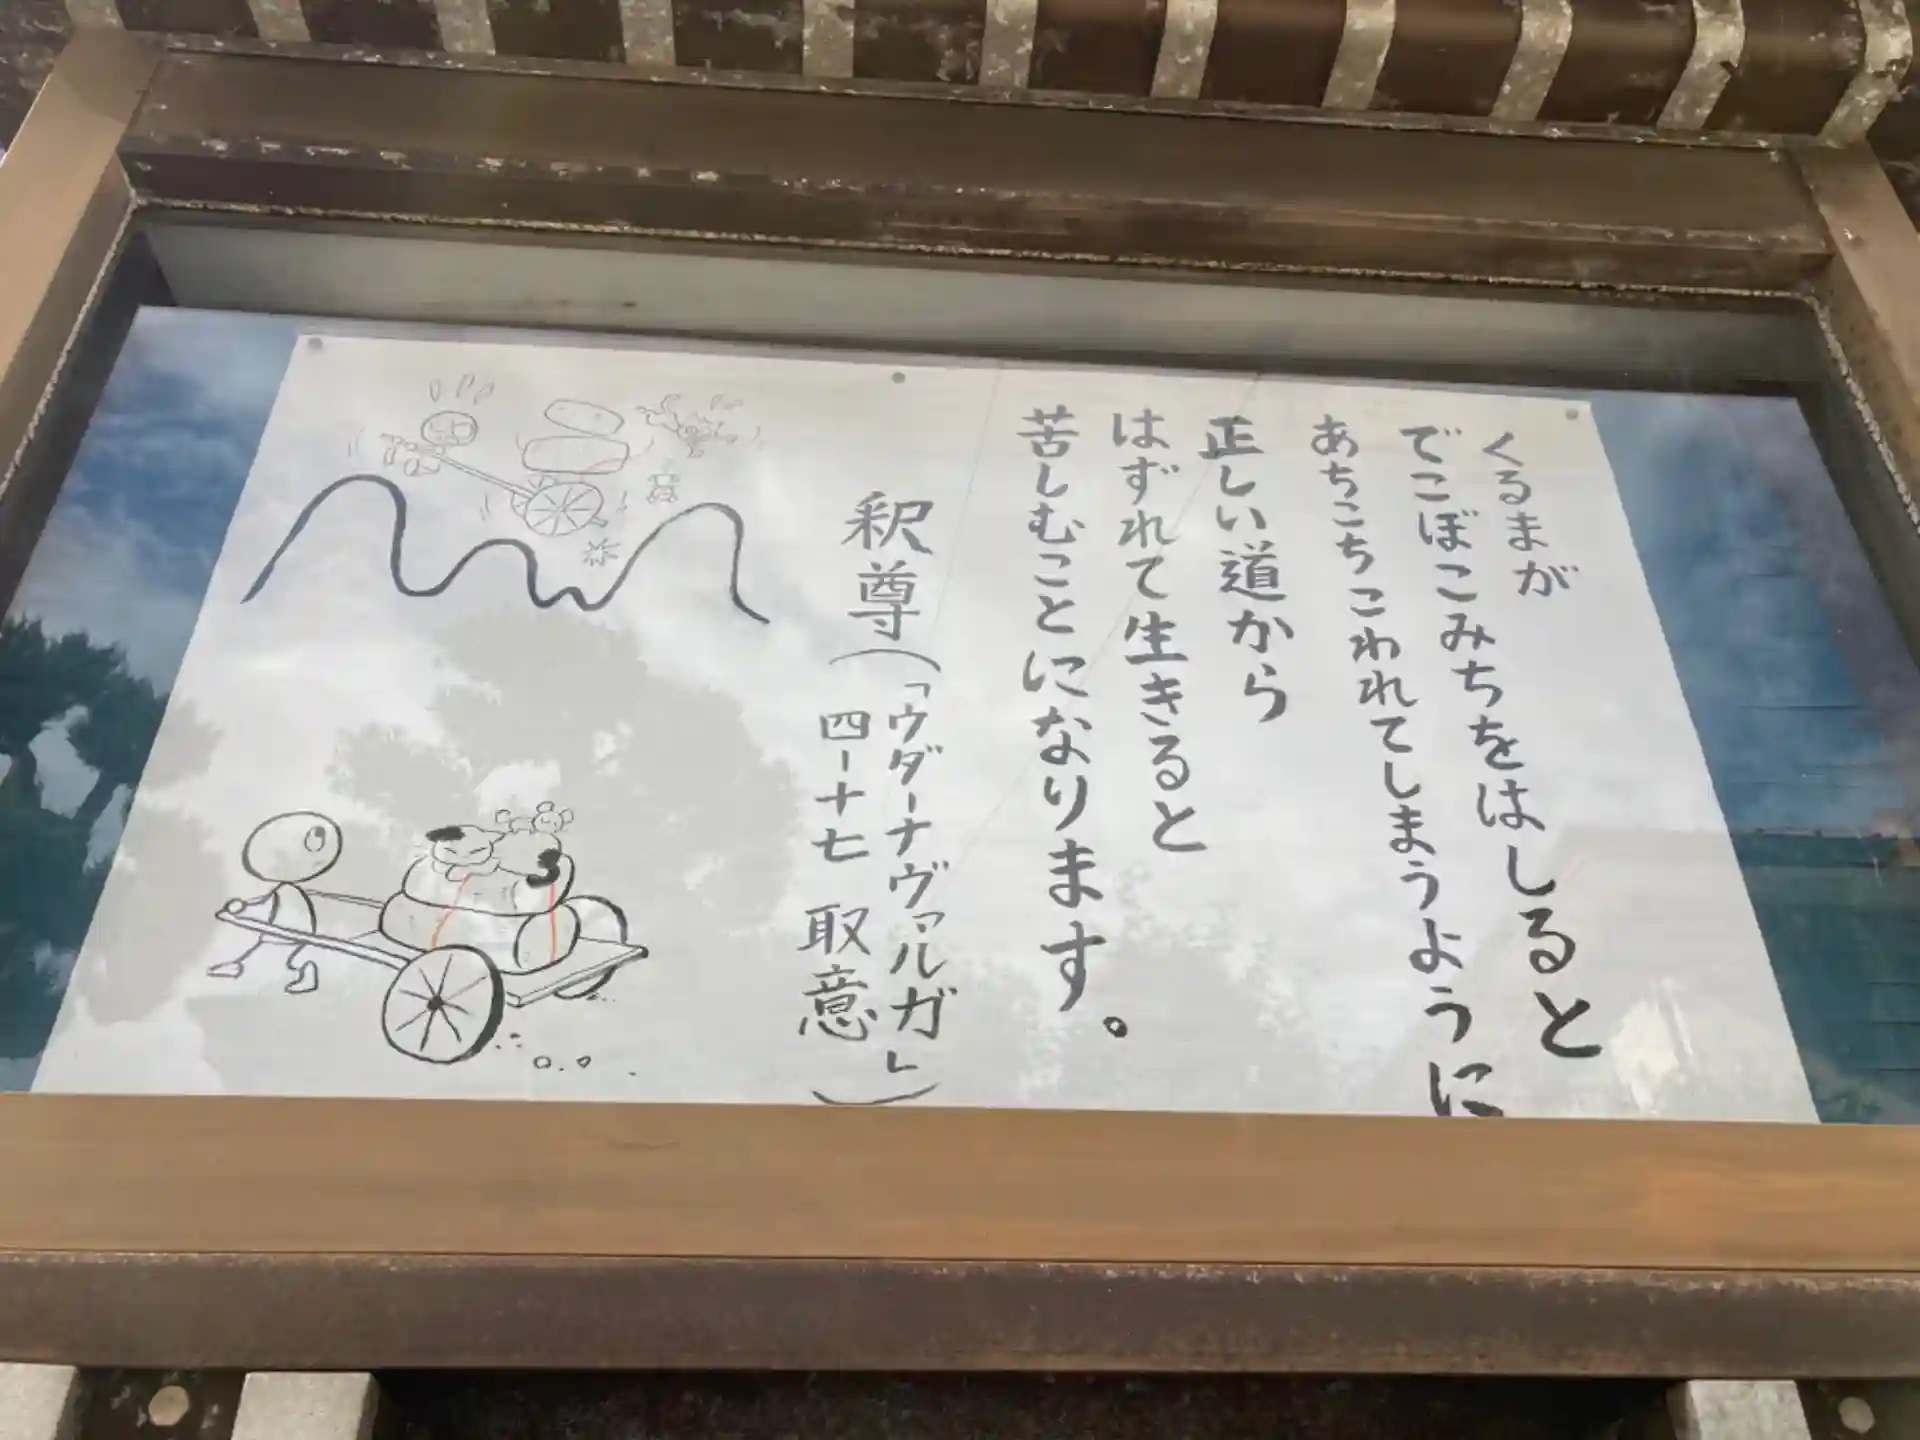 くるまが
でこぼこみちをはしると
あちこちこわれてしまうように
正しい道から
はずれて生きると
苦しむことになります。
釈尊(「ウダーナヴァルガ」
四-十七 取意)